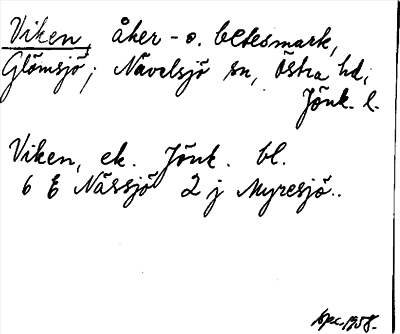 Viken, åker- o. betesmark,
Glömsjö, Nävelsjö sn, Östra hd,
Jönk. l.
Viken, ek. Jönk. bl.
6 E Nässjö 2 j Myresjö..